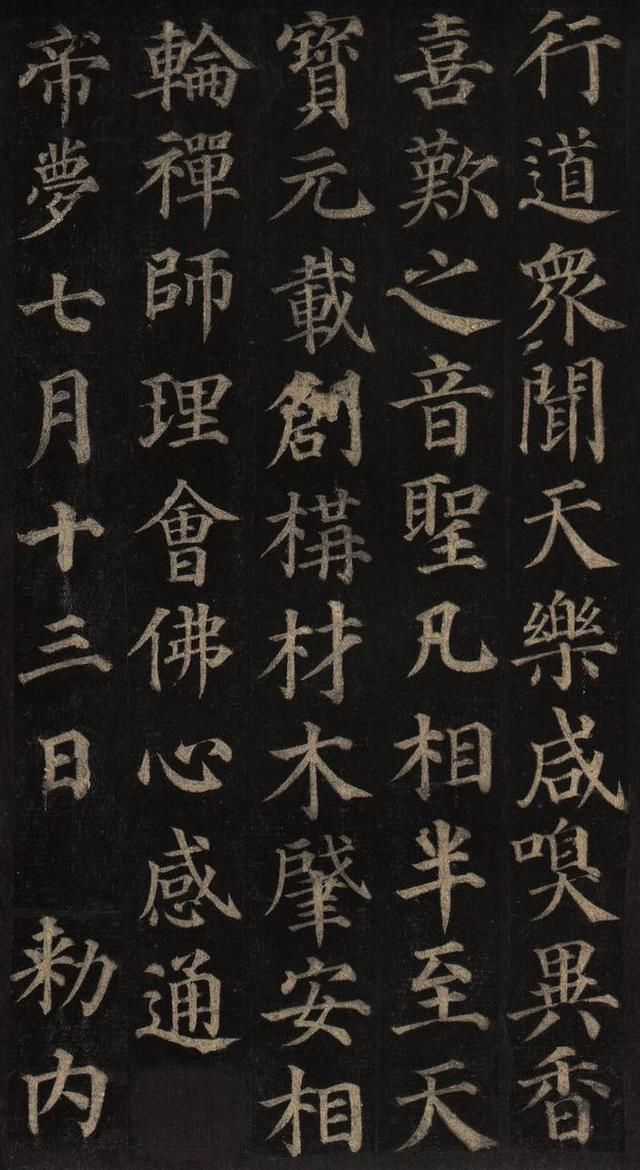 行道衆聞天樂咸嗅異香
喜歎之音聖凡相半至天
寶元載創構材木肇安相
輪禪師理會佛心感通
帝夢七月十三日勑内